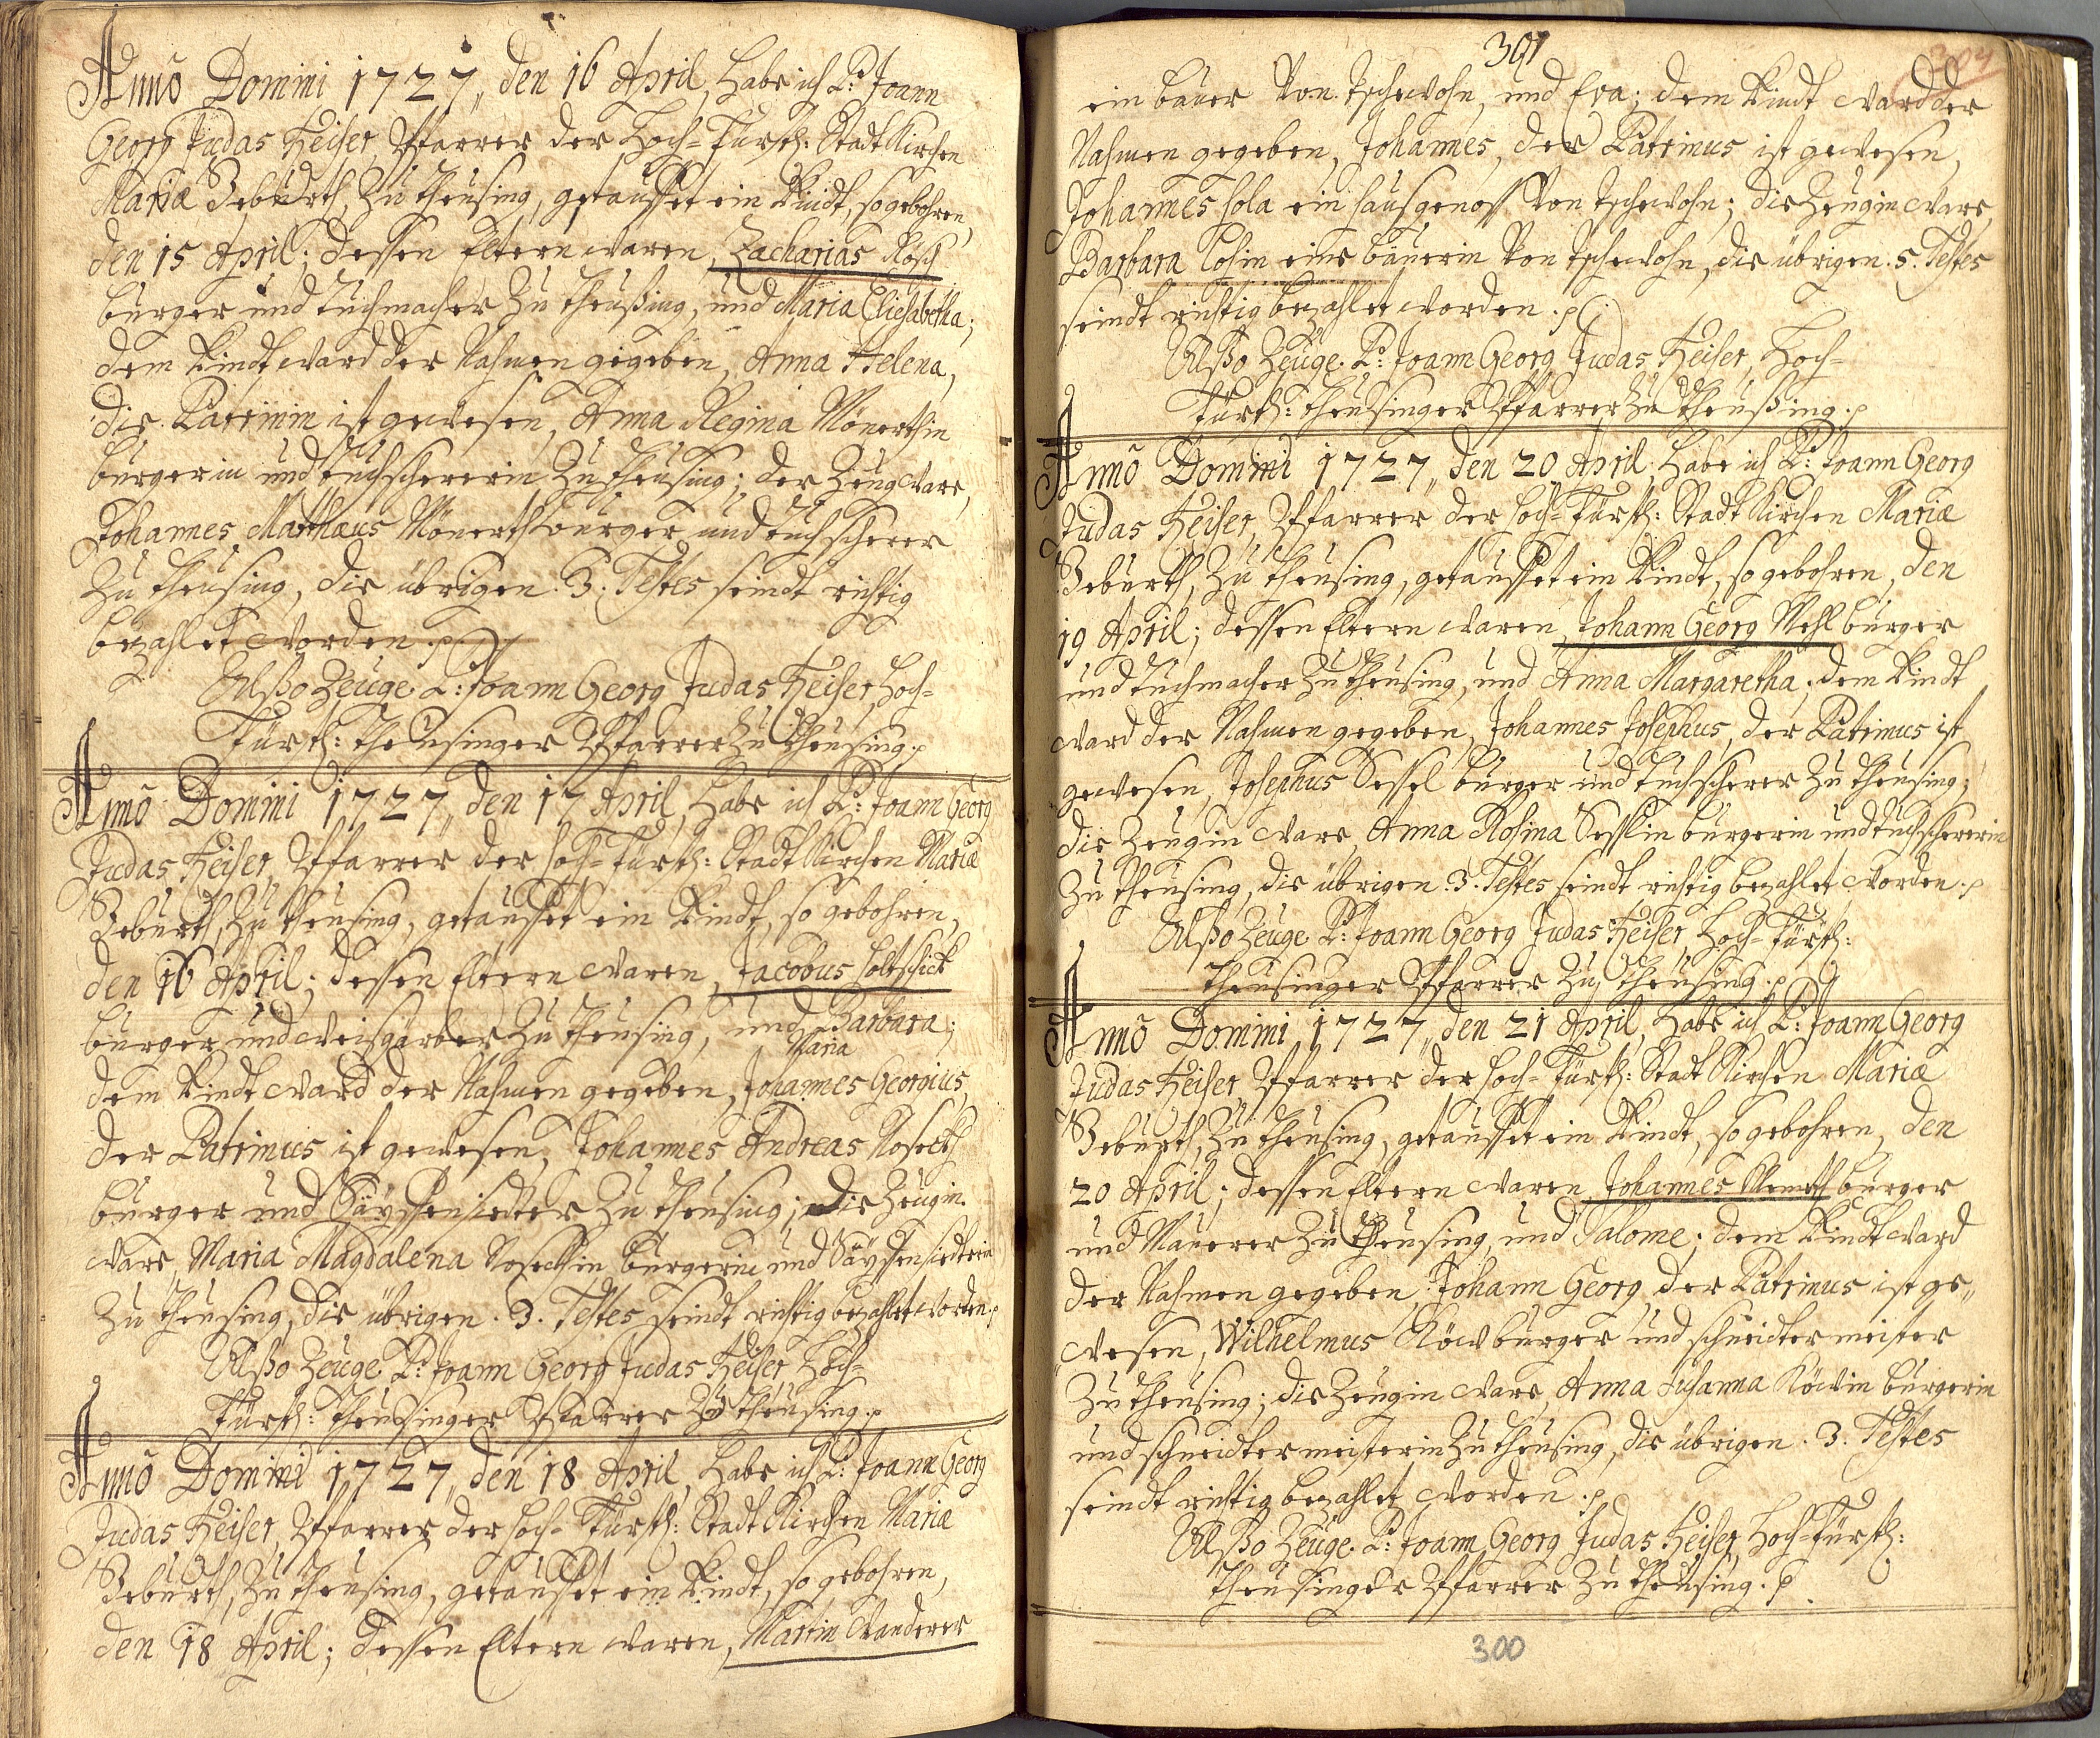 Anno Domini 1727,, den 16 April, habe ich P: Joann
Georg Judas Heiser, Pfarrer der Hoch=Fürstl: Stadt Kirchen
Mariæ Geburth, zu Theusing, getauffet ein Kindt, so gebohren,
den 15 April; dessen Eltern waren, Zacharias Rösch
burger und Tuchmacher zu Theusing, und Maria Eliesabetha;
dem Kindt ward der Nahmen gegeben, Anna Helena,
die Patrinin ist gewesen, Anna Regina Mönerthin
burgerin und tuchschererin zu Theusing; der Zeug ware,
Johannes Matthæus Mönerth burger und tuchscherer
zu Theusing, die übrigen .3. Testes seindt richtig
bezahlet worden.
Alßo Zeuge P: Joann Georg Judas Heiser, Hoch=
Fürstl: Theusinger Pfarrer zu Theusing.
Anno Domini 1727,, den 17 April, habe ich P: Joann Georg
Judas Heiser, Pfarrer der Hoch=Fürstl: Stadt Kirchen Mariæ
Geburth, zu Theusing, getauffet ein Kindt, so gebohren,
den 16 April; dessen Eltern waren, Jacobus Holtschick
burger und Weisgarber zu Theusing, und Barbara;
Maria
dem Kindt ward der Nahmen gegeben, Johannes Georgius,
der Patrinus ist gewesen, Johannes Andreas Noseckh
burger und Säyffensiedter zu Theusing; die Zeugin
ware, Maria Magdalena Noseckhin burgerin und Säyffensiedterin
zu Theusing, die übrigen .3. Testes seindt richtig bezahlet worden.
Alßo Zeuge P: Joann Georg Judas Heiser, Hoch=
Fürstl: Theusinger Pfarrer zu Theusing.
Anno Domini 1727,, den 18 April, habe ich P: Joann Georg
Judas Heiser, Pfarrer der Hoch=Fürstl: Stadt Kirchen Mariæ
Geburth, zu Theusing, getauffet ein Kindt, so gebohren,
den 18 April; dessen Eltern waren, Martin Wanderer
301
304
ein bauer von Tschewohn, und Eva; dem Kindt ward der
Nahmen gegeben, Johannes, der Patrinus ist gewesen,
Johannes Hola ein hausgenoss von Tschewohn; die Zeugin ware,
Barbara Lohin eine bäuerin von Tschewohn, die übrigen .5. Testes
seindt richtig bezahlet worden.
Alßo Zeuge P: Joann Georg Judas Heiser, Hoch=
Fürstl: Theusinger Pfarrer zu Theusing.
Anno Domini 1727,, den 20 April, habe ich P: Joann Georg
Judas Heiser, Pfarrer der Hoch=Fürstl: Stadt Kirchen Mariæ
Geburth, zu Theusing, getauffet ein Kindt, so gebohren, den
19 April; dessen Eltern waren, Johann Georg Mehl burger
und tuchmacher zu Theusing, und Anna Margaretha; dem Kindt
ward der Nahmen gegeben, Johannes Josephus, der Patrinus ist
gewesen, Josephus Sessel burger und tuchscherer zu Theusing;
die Zeugin ware, Anna Rosina Sesslin burgerin und tuchschererin
zu Theusing, die übrigen .3. Testes seindt richtig bezahlet worden.
Alßo Zeuge P: Joann Georg Judas Heiser, Hoch=Fürstl:
Theusinger Pfarrer zu Theusing.
Anno Domini 1727,, den 21 April, habe ich P: Joann Georg
Judas Heiser, Pfarrer der Hoch=Fürstl: Stadt Kirchen Mariæ
Geburth, zu Theusing, getauffet ein Kindt, so gebohren, den
20 April; dessen Eltern waren, Johannes Klemeth burger
und Maurer zu Theusing, und Salome; dem Kindt ward
der Nahmen gegeben Johann Georg, der Patrinus ist ge,,
wesen, Wilhelmus Köw burger und schneidter meister
zu Theusing; die Zeugin ware, Anna Susanna Köwin burgerin
und schneidter meisterin zu Theusing, die übrigen .3. Testes
seindt richtig bezahlet worden.
Alßo Zeuge P: Joann Georg Judas Heiser, Hoch=Fürstl:
Theusinger Pfarrer zu Theusing.
300